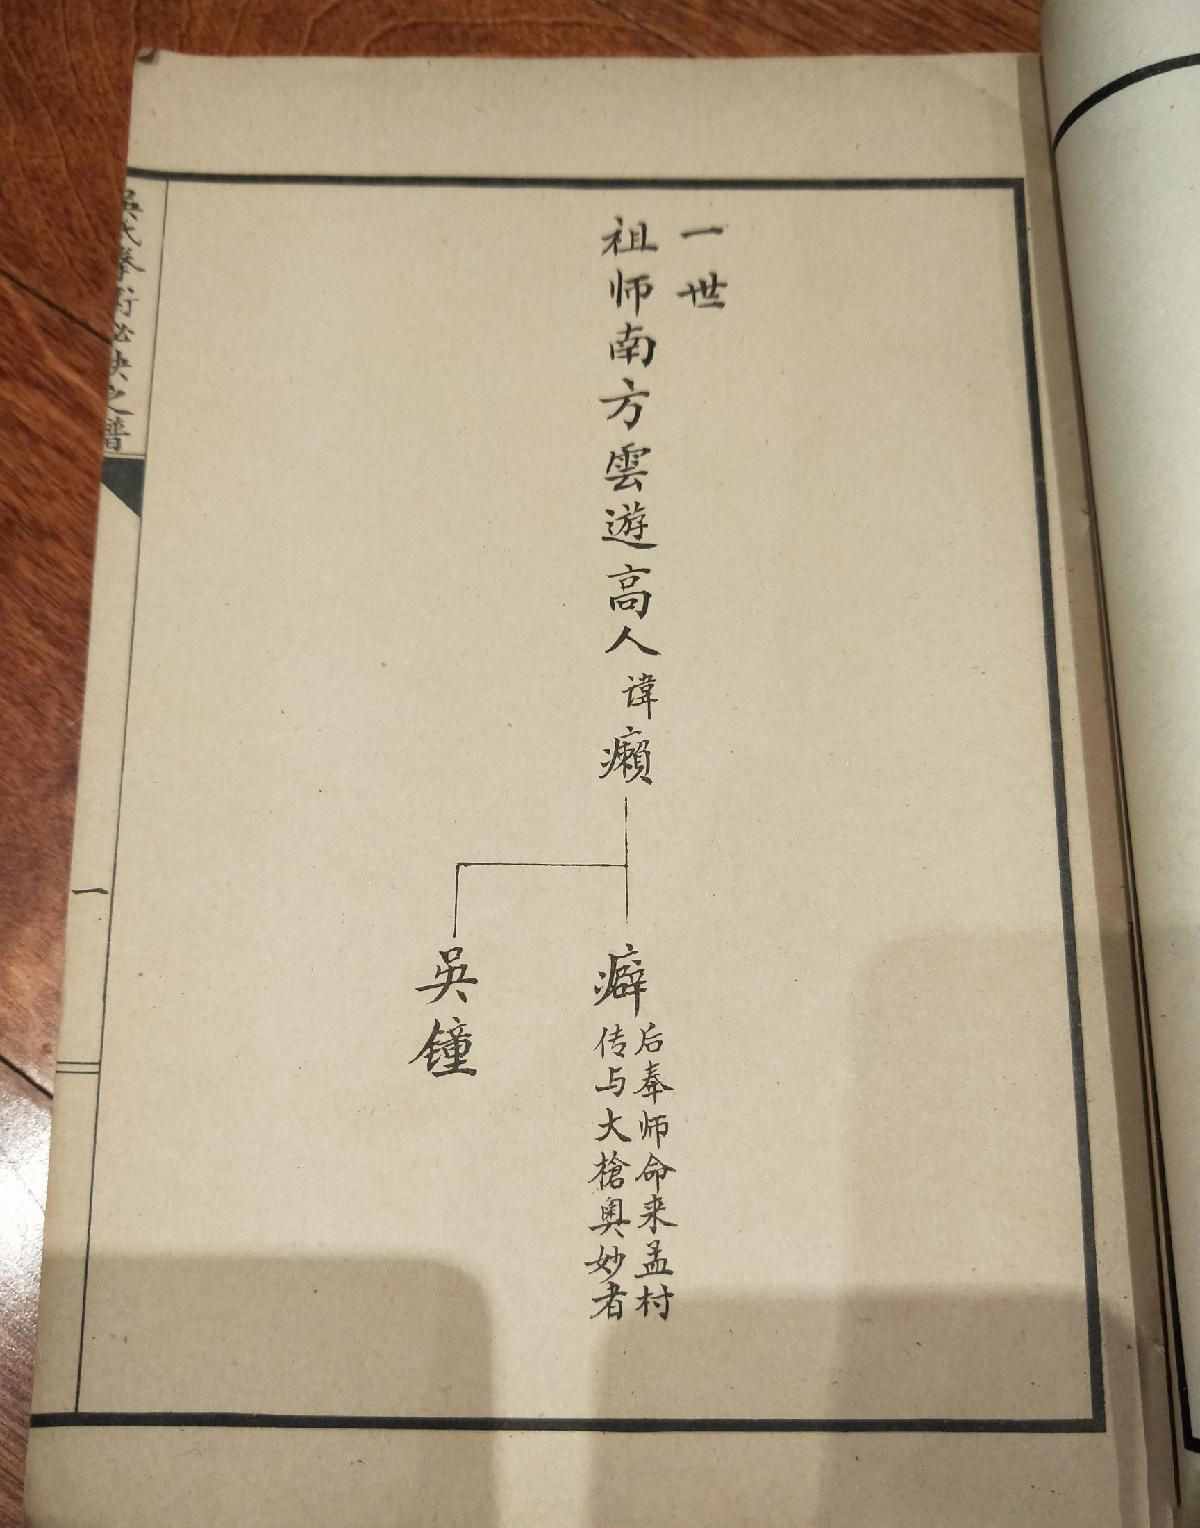 一世
祖师南方雲遊高人諱癩
癖
后奉师命来孟村
传与大槍奥妙者
吳鐘
吳氏拳術必決之譜
一